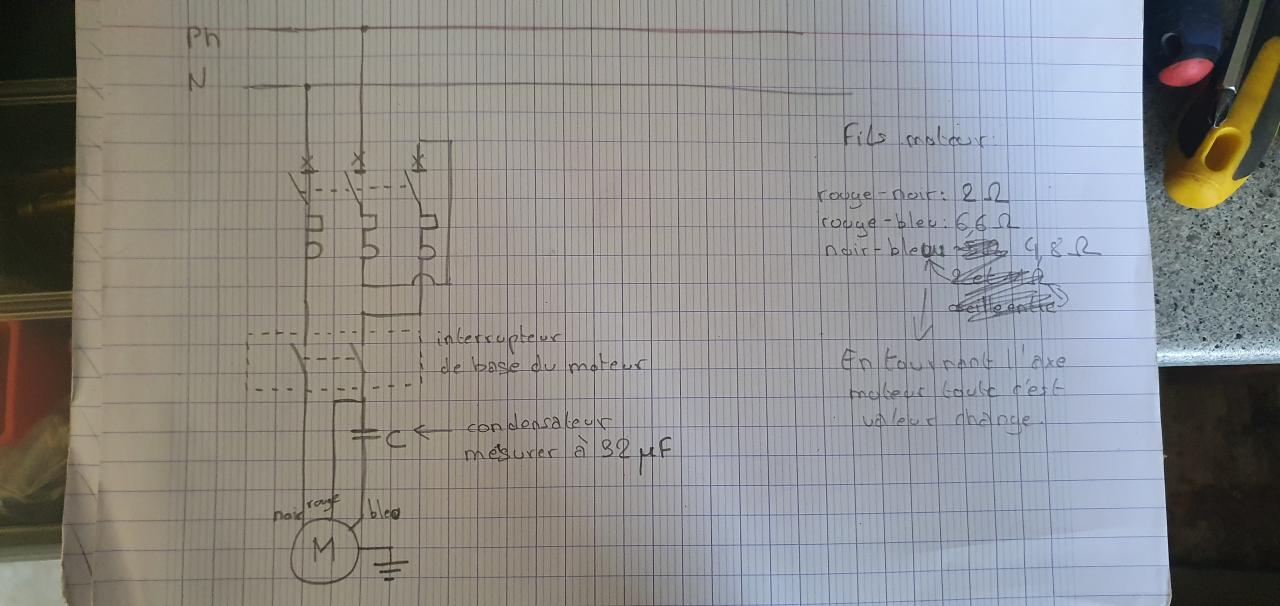 Ph
N
Fils moteur:
rouge-noir: 2 Ω
rouge-bleu: 6,6 Ω
noir-bleu 4,8 Ω
interrupteur
de base du moteur
En tournant l'axe
moteur tout c'est
valeur change.
C ← condensateur
mesurer à 32 µF
noir rouge bleu
M